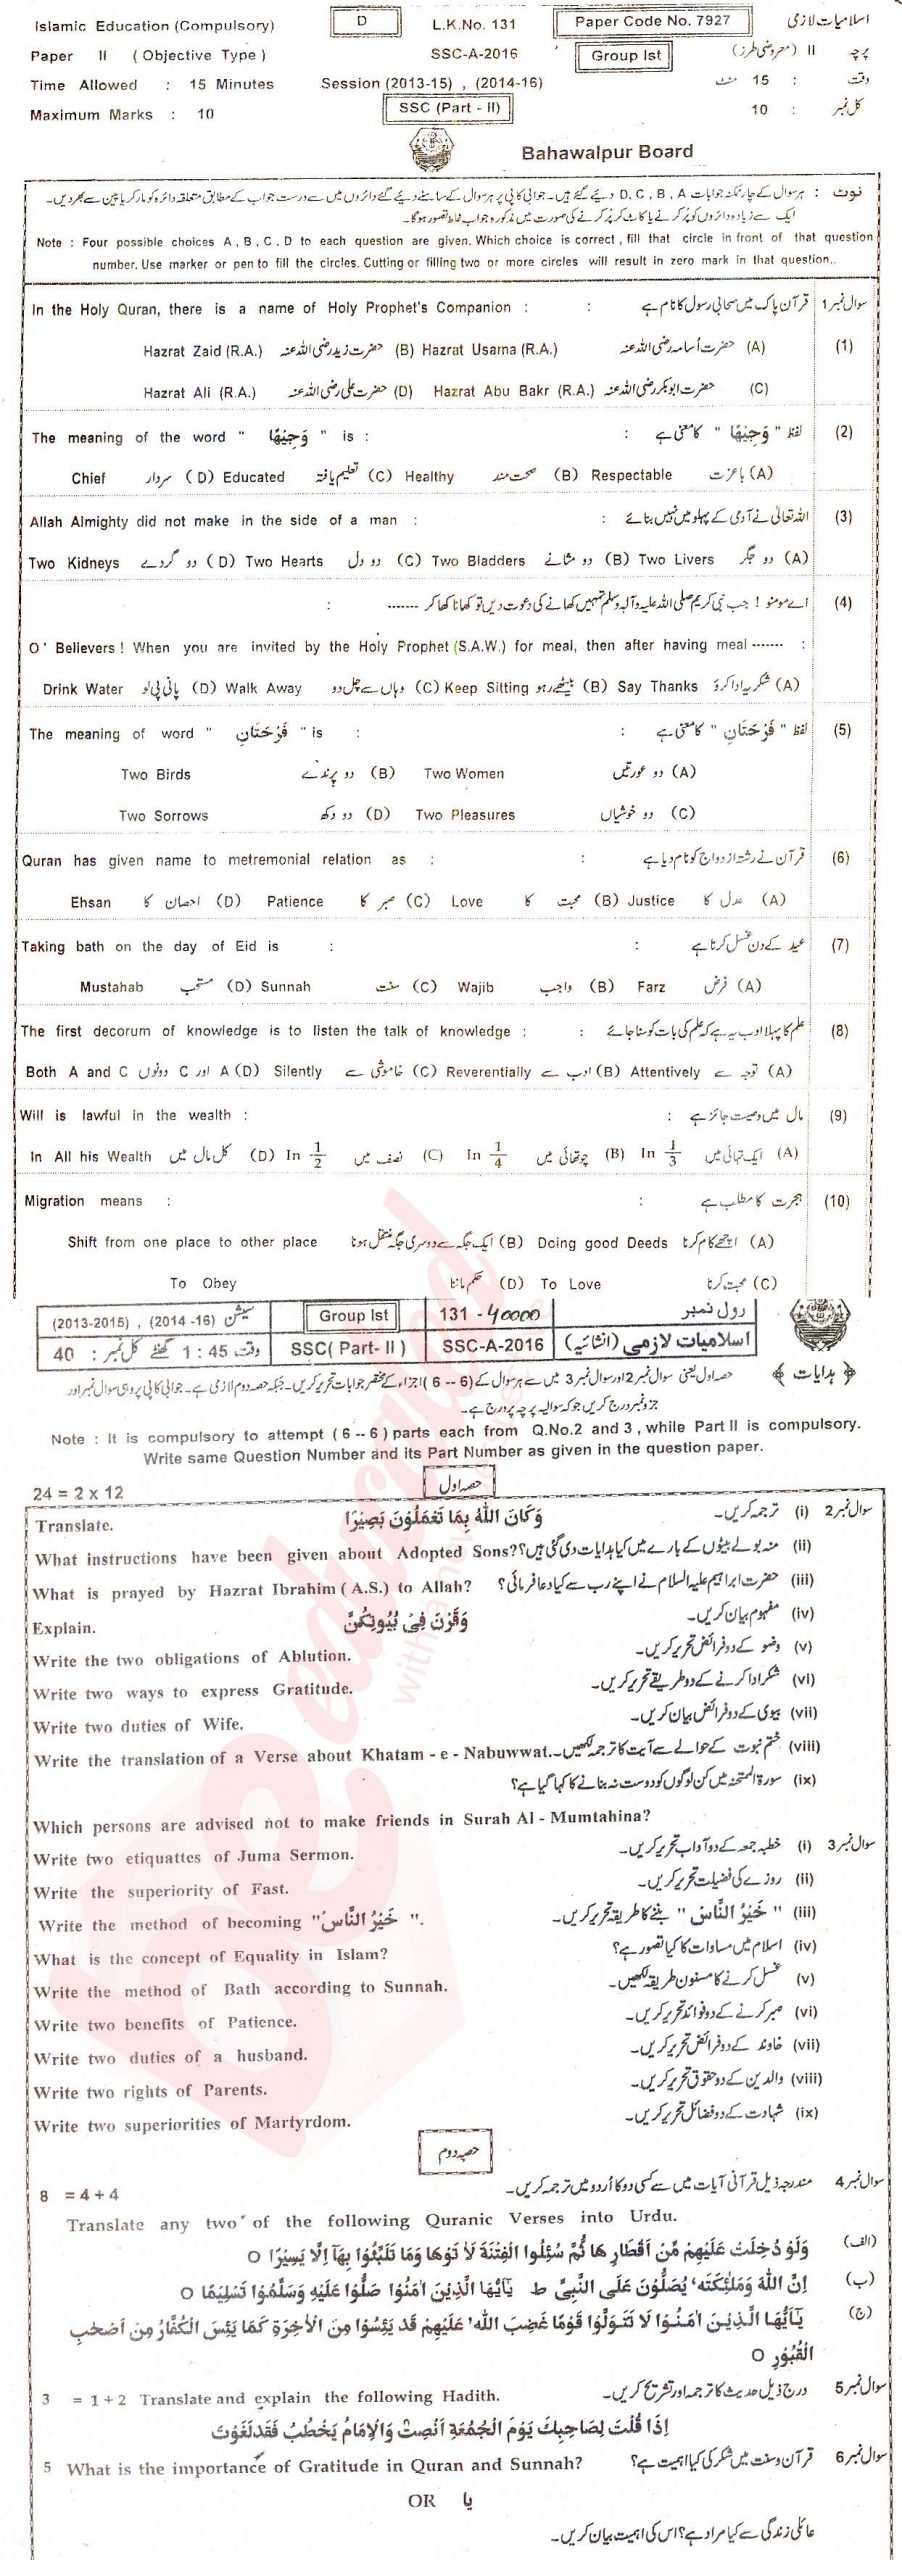 Islamic Education (Compulsory) D L.K.No. 131 Paper Code No. 7927 اسلامیات لازمی
Paper II ( Objective Type ) SSC-A-2016 Group Ist پرچہ II (معروضی طرز)
Time Allowed : 15 Minutes Session (2013-15) , (2014-16) وقت : 15 منٹ
Maximum Marks : 10 SSC (Part - II) کل نمبر : 10
Bahawalpur Board
نوٹ : ہر سوال کے چار ممکنہ جوابات D, C, B, A دیئے گئے ہیں۔ جوابی کاپی پر ہر سوال کے سامنے دیئے گئے دائروں میں سے درست جواب کے مطابق متعلقہ دائرہ کو مارکر یا پین سے بھر دیں۔
ایک سے زیادہ دائروں کو پُر کرنے یا کاٹ کر پُر کرنے کی صورت میں مذکورہ جواب غلط تصور ہوگا۔
Note : Four possible choices A , B , C , D to each question are given. Which choice is correct , fill that circle in front of that question
number. Use marker or pen to fill the circles. Cutting or filling two or more circles will result in zero mark in that question..
In the Holy Quran, there is a name of Holy Prophet's Companion : : قرآن پاک میں صحابی رسول کا نام ہے سوال نمبر 1
Hazrat Zaid (R.A.) حضرت زید رضی اللہ عنہ (B) Hazrat Usama (R.A.) حضرت اُسامہ رضی اللہ عنہ (A) (1)
Hazrat Ali (R.A.) حضرت علی رضی اللہ عنہ (D) Hazrat Abu Bakr (R.A.) حضرت ابوبکر رضی اللہ عنہ (C)
The meaning of the word " وَجِيْهًا " is : : لفظ " وَجِيْهًا " کا معنی ہے (2)
Chief سردار (D) Educated تعلیم یافتہ (C) Healthy صحت مند (B) Respectable باعزت (A)
Allah Almighty did not make in the side of a man : : اللہ تعالیٰ نے آدمی کے پہلو میں نہیں بنائے (3)
Two Kidneys دو گردے (D) Two Hearts دو دل (C) Two Bladders دو مثانے (B) Two Livers دو جگر (A)
: ------ اے مومنو ! جب نبی کریم صلی اللہ علیہ وآلہ وسلم تمہیں کھانے کی دعوت دیں تو کھانا کھا کر (4)
O' Believers ! When you are invited by the Holy Prophet (S.A.W.) for meal, then after having meal ------ :
Drink Water پانی پی لو (D) Walk Away وہاں سے چل دو (C) Keep Sitting بیٹھے رہو (B) Say Thanks شکریہ ادا کرو (A)
The meaning of word " فَرْحَتَانِ " is : : لفظ " فَرْحَتَانِ " کا معنی ہے (5)
Two Birds دو پرندے (B) Two Women دو عورتیں (A)
Two Sorrows دو دکھ (D) Two Pleasures دو خوشیاں (C)
Quran has given name to metremonial relation as : : قرآن نے رشتہ ازدواج کو نام دیا ہے (6)
Ehsan احصان کا (D) Patience صبر کا (C) Love محبت کا (B) Justice عدل کا (A)
Taking bath on the day of Eid is : : عید کے دن غسل کرنا ہے (7)
Mustahab مستحب (D) Sunnah سنت (C) Wajib واجب (B) Farz فرض (A)
The first decorum of knowledge is to listen the talk of knowledge : : علم کا پہلا ادب یہ ہے کہ علم کی بات کو سنا جائے (8)
Both A and C دونوں C اور A (D) Silently خاموشی سے (C) Reverentially ادب سے (B) Attentively توجہ سے (A)
Will is lawful in the wealth : : مال میں وصیت جائز ہے (9)
In All his Wealth کل مال میں (D) In 1/2 نصف میں (C) In 1/4 چوتھائی میں (B) In 1/3 ایک تہائی میں (A)
Migration means : : ہجرت کا مطلب ہے (10)
Shift from one place to other place ایک جگہ سے دوسری جگہ منتقل ہونا (B) Doing good Deeds اچھے کام کرنا (A)
To Obey حکم ماننا (D) To Love محبت کرنا (C)
(2013-2015) , (2014 -16) سیشن Group Ist 131 - 40000 رول نمبر
وقت 1 : 45 گھنٹے کل نمبر : 40 SSC( Part- II ) SSC-A-2016 اسلامیات لازمی (انشائیہ)
﴿ ہدایات ﴾ حصہ اول یعنی سوال نمبر 2 اور سوال نمبر 3 میں سے ہر سوال کے (6 -- 6) اجزاء کے مختصر جوابات تحریر کریں۔ جبکہ حصہ دوم لازمی ہے۔ جوابی کاپی پر وہی سوال نمبر اور
جزو نمبر درج کریں جو کہ سوالیہ پرچہ پر درج ہے۔
Note : It is compulsory to attempt ( 6 -- 6 ) parts each from Q.No.2 and 3 , while Part II is compulsory.
Write same Question Number and its Part Number as given in the question paper.
24 = 2 x 12 حصہ اول
Translate. وَكَانَ اللّٰهُ بِمَا تَعْمَلُوْنَ بَصِيْرًا ترجمہ کریں۔ (i) سوال نمبر 2
What instructions have been given about Adopted Sons? منہ بولے بیٹوں کے بارے میں کیا ہدایات دی گئی ہیں؟ (ii)
What is prayed by Hazrat Ibrahim ( A.S.) to Allah? حضرت ابراہیم علیہ السلام نے اپنے رب سے کیا دعا فرمائی؟ (iii)
Explain. وَقَرْنَ فِيْ بُيُوتِكُنَّ مفہوم بیان کریں۔ (iv)
Write the two obligations of Ablution. وضو کے دو فرائض تحریر کریں۔ (v)
Write two ways to express Gratitude. شکر ادا کرنے کے دو طریقے تحریر کریں۔ (vi)
Write two duties of Wife. بیوی کے دو فرائض بیان کریں۔ (vii)
Write the translation of a Verse about Khatam - e - Nabuwwat. ختم نبوت کے حوالے سے آیت کا ترجمہ لکھیں۔ (viii)
سورۃ الممتحنہ میں کن لوگوں کو دوست نہ بنانے کا کہا گیا ہے؟ (ix)
Which persons are advised not to make friends in Surah Al - Mumtahina?
Write two etiquattes of Juma Sermon. خطبہ جمعہ کے دو آداب تحریر کریں۔ (i) سوال نمبر 3
Write the superiority of Fast. روزے کی فضیلت تحریر کریں۔ (ii)
Write the method of becoming " خَيْرُ النَّاسُ ". " خَيْرُ النَّاسُ " بننے کا طریقہ تحریر کریں۔ (iii)
What is the concept of Equality in Islam? اسلام میں مساوات کا کیا تصور ہے؟ (iv)
Write the method of Bath according to Sunnah. غسل کرنے کا مسنون طریقہ لکھیں۔ (v)
Write two benefits of Patience. صبر کرنے کے دو فوائد تحریر کریں۔ (vi)
Write two duties of a husband. خاوند کے دو فرائض تحریر کریں۔ (vii)
Write two rights of Parents. والدین کے دو حقوق تحریر کریں۔ (viii)
Write two superiorities of Martyrdom. شہادت کے دو فضائل تحریر کریں۔ (ix)
حصہ دوم
8 = 4 + 4 مندرجہ ذیل قرآنی آیات میں سے کسی دو کا اُردو میں ترجمہ کریں۔ سوال نمبر 4
Translate any two of the following Quranic Verses into Urdu.
(الف) وَلَوْ دُخِلَتْ عَلَيْهِمْ مِّنْ اَقْطَارِ هَا ثُمَّ سُئِلُوا الْفِتْنَةَ لَاٰ تَوْهَا وَمَا تَلَبَّثُوْا بِهَآ اِلَّا يَسِيْرًا ○
(ب) اِنَّ اللّٰهَ وَمَلٰٓئِكَتَه' يُصَلُّوْنَ عَلَى النَّبِيِّ ط يٰٓاَيُّهَا الَّذِيْنَ اٰمَنُوْا صَلُّوْا عَلَيْهِ وَسَلِّمُوْا تَسْلِيْمًا ○
(ج) يٰٓاَيُّهَا الَّذِيْنَ اٰمَنُوْا لَا تَتَوَلَّوْا قَوْمًا غَضِبَ اللّٰه' عَلَيْهِمْ قَدْ يَئِسُوْا مِنَ الْاٰخِرَةِ كَمَا يَئِسَ الْكُفَّارُ مِنْ اَصْحٰبِ
الْقُبُوْرِ ○
3 = 1 + 2 Translate and explain the following Hadith. درج ذیل حدیث کا ترجمہ اور تشریح کریں۔ سوال نمبر 5
اِذَا قُلْتَ لِصَاحِبِكَ يَوْمَ الْجُمُعَةِ اَنْصِتْ وَالْاِمَامُ يَخْطُبُ فَقَدْ لَغَوْتَ
5 What is the importance of Gratitude in Quran and Sunnah? قرآن و سنت میں شکر کی کیا اہمیت ہے؟ سوال نمبر 6
OR یا
عائلی زندگی سے کیا مراد ہے؟ اس کی اہمیت بیان کریں۔